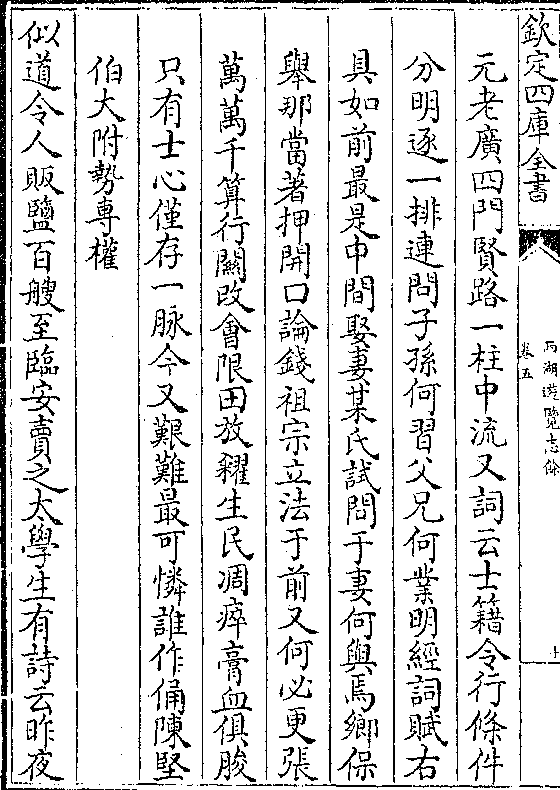 欽定四庫全書
西湖遊覽志餘
卷五
元老廣四門賢路一柱中流又詞云士籍令行條件
分明逐一排連問子孫何習父兄何業明經詞賦右
具如前最是中間娶妻某氏試問于妻何與焉鄉保
舉那當著押開口論錢祖宗立法于前又何必更張
萬萬千算行關改會限田放糴生民凋瘁膏血俱朘
只有士心僅存一脉今又艱難最可憐誰作俑陳堅
伯大附勢專權
似道令人販鹽百艘至臨安賣之太學生有詩云昨夜